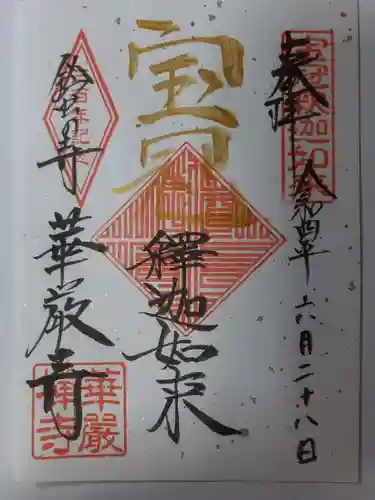 奉拝
令和四年
六月二十八日
宝冠
釋迦如来
鈴虫の寺
華厳寺
華嚴禅寺